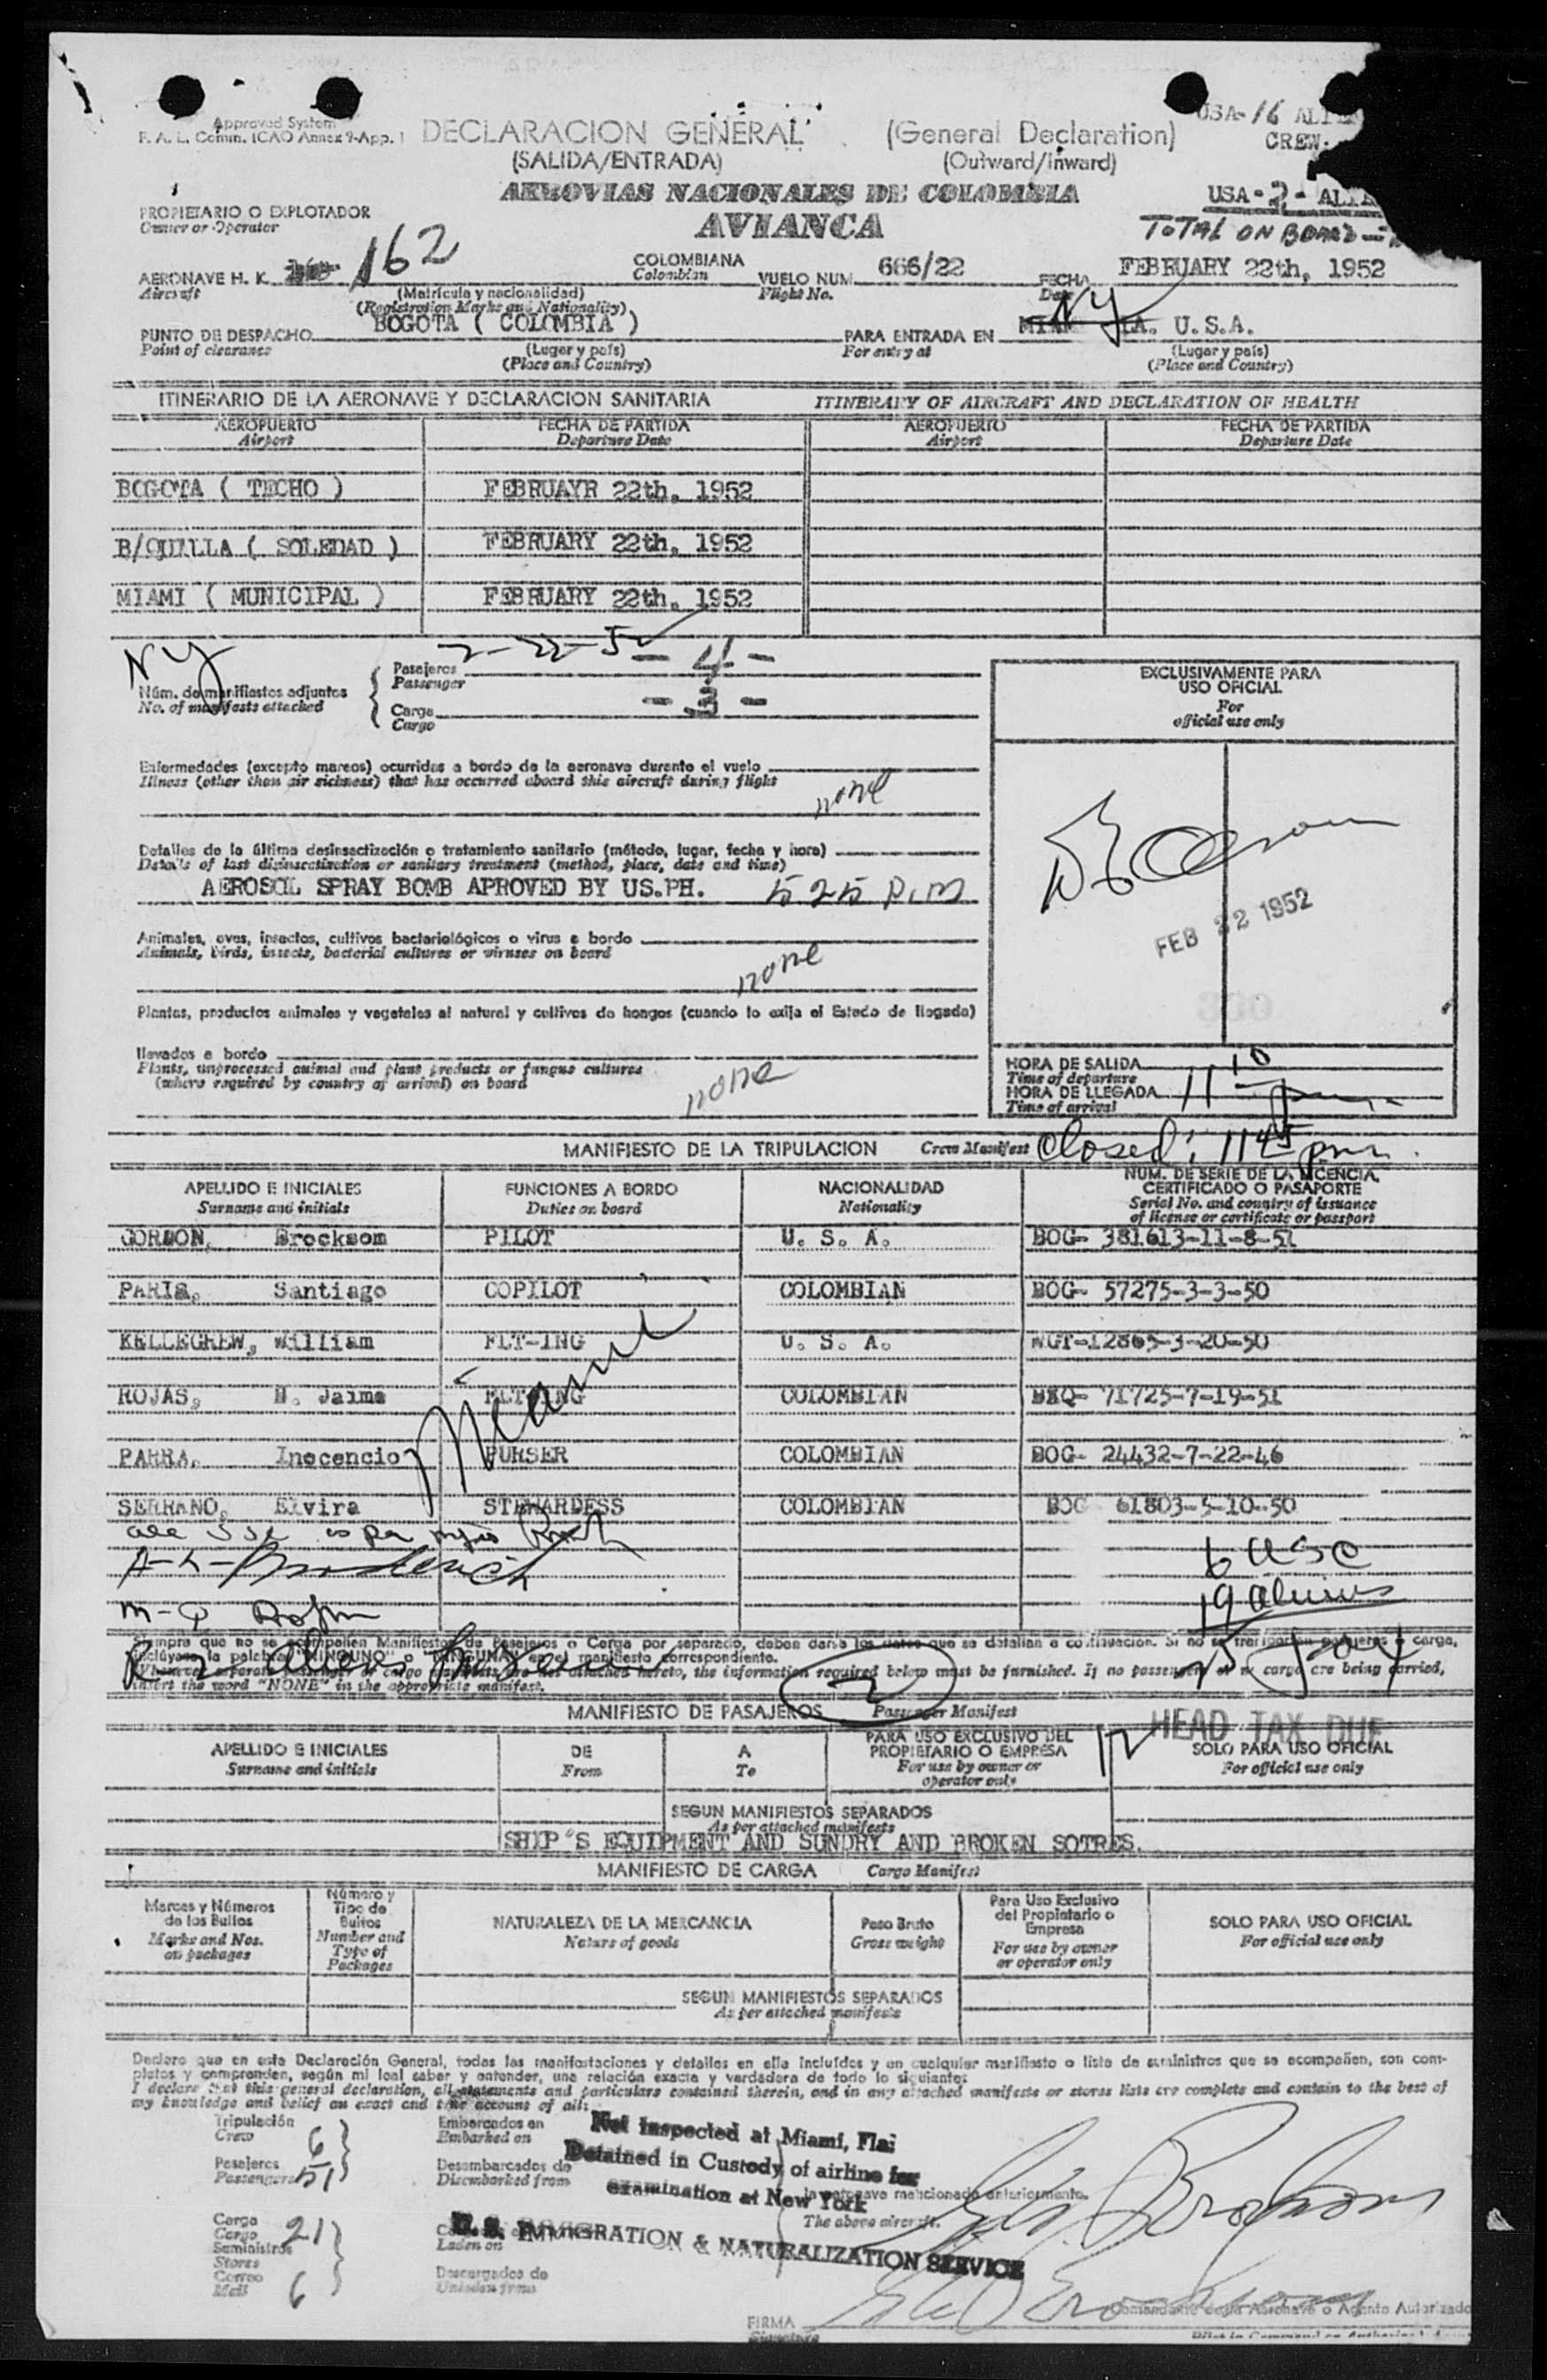 Approved System
F. A. L. Comm. ICAO Annex 9-App. 1
DECLARACION GENERAL (General Declaration)
(SALIDA/ENTRADA) (Outward/inward)
USA-16
CREW.
AEROVIAS NACIONALES DE COLOMBIA
AVIANCA
USA-2-
TOTAL ON BOARD-
PROPIETARIO O EXPLOTADOR
Owner or Operator
AERONAVE H. K. 162 COLOMBIANA VUELO NUM. 666/22 FECHA FEBRUARY 22th, 1952
Aircraft Colombian Flight No. Date
(Matrícula y nacionalidad)
(Registration Marks and Nationality)
PUNTO DE DESPACHO BOGOTA ( COLOMBIA ) PARA ENTRADA EN NY U.S.A.
Point of clearance (Lugar y país) For entry at (Lugar y país)
(Place and Country) (Place and Country)
ITINERARIO DE LA AERONAVE Y DECLARACION SANITARIA ITINERARY OF AIRCRAFT AND DECLARATION OF HEALTH
AEROPUERTO FECHA DE PARTIDA AEROPUERTO FECHA DE PARTIDA
Airport Departure Date Airport Departure Date
BOGOTA ( TECHO ) FEBRUAYR 22th, 1952
B/QUILLA ( SOLEDAD ) FEBRUARY 22th, 1952
MIAMI ( MUNICIPAL ) FEBRUARY 22th, 1952
NY 2-22-52
Núm. de manifiestos adjuntos
No. of manifests attached
Pasajeros - 4 -
Passenger
Carga - 3 -
Cargo
EXCLUSIVAMENTE PARA
USO OFICIAL
For
official use only
FEB 22 1952
Enfermedades (excepto mareos) ocurridas a bordo de la aeronave durante el vuelo
Illness (other than air sickness) that has occurred aboard this aircraft during flight
none
Detalles de la última desinsectización o tratamiento sanitario (método, lugar, fecha y hora)
Details of last disinsectization or sanitary treatment (method, place, date and time)
AEROSOL SPRAY BOMB APROVED BY US.PH. 525 P.M
Animales, aves, insectos, cultivos bacteriológicos o virus a bordo
Animals, birds, insects, bacterial cultures or viruses on board
none
Plantas, productos animales y vegetales al natural y cultivos de hongos (cuando lo exija el Estado de llegada)
llevados a bordo
Plants, unprocessed animal and plant products or fungus cultures
(where required by country of arrival) on board
none
HORA DE SALIDA
Time of departure
HORA DE LLEGADA 11 10 pm
Time of arrival
MANIFIESTO DE LA TRIPULACION Crew Manifest Closed: 1145 pm.
APELLIDO E INICIALES FUNCIONES A BORDO NACIONALIDAD NUM. DE SERIE DE LA LICENCIA,
CERTIFICADO O PASAPORTE
Surname and initials Duties on board Nationality Serial No. and country of issuance
of license or certificate or passport
GORDON, Brocksom PILOT U. S. A. BOG- 381613-11-8-51
PARIS, Santiago COPILOT COLOMBIAN BOG- 57275-3-3-50
KELLEGREW, William FLT-ING U. S. A. WGT-12865-3-20-50
ROJAS, H. Jaime FLT-ING COLOMBIAN 71725-7-19-51
PARRA, Inocencio PURSER COLOMBIAN BOG- 24432-7-22-46
SERRANO, Elvira STEWARDESS COLOMBIAN BOG 61803-5-10-50
Miami
6 USC
19 aliens
Siempre que no se acompañen Manifiestos de Pasajeros o Carga por separado, deben darse los datos que se detallan a continuación. Si no se transportan pasajeros o carga,
inclúyase la palabra "NINGUNO" o "NINGUNA" en el manifiesto correspondiente.
Whenever separate passenger or cargo manifests are not attached hereto, the information required below must be furnished. If no passengers or no cargo are being carried,
insert the word "NONE" in the appropriate manifest.
2
MANIFIESTO DE PASAJEROS Passenger Manifest
12 HEAD TAX DUE
APELLIDO E INICIALES DE A PARA USO EXCLUSIVO DEL
PROPIETARIO O EMPRESA SOLO PARA USO OFICIAL
Surname and initials From To For use by owner or
operator only For official use only
SEGUN MANIFIESTOS SEPARADOS
As per attached manifests
SHIP'S EQUIPMENT AND SUNDRY AND BROKEN SOTRES.
MANIFIESTO DE CARGA Cargo Manifest
Marcas y Números
de los Bultos
Marks and Nos.
on packages
Número y
Tipo de
Bultos
Number and
Type of
Packages
NATURALEZA DE LA MERCANCIA
Nature of goods
Peso Bruto
Gross weight
Para Uso Exclusivo
del Propietario o
Empresa
For use by owner
or operator only
SOLO PARA USO OFICIAL
For official use only
SEGUN MANIFIESTOS SEPARADOS
As per attached manifests
Declaro que en esta Declaración General, todas las manifestaciones y detalles en ella incluídos y en cualquier manifiesto o lista de suministros que se acompañen, son com-
pletos y comprenden, según mi leal saber y entender, una relación exacta y verdadera de todo lo siguiente:
I declare that this general declaration, all statements and particulars contained therein, and in any attached manifests or stores lists are complete and contain to the best of
my knowledge and belief an exact and true account of all:
Tripulación
Crew 6
Pasajeros
Passengers 51
Embarcados en
Embarked on
Desembarcados de
Disembarked from
Not Inspected at Miami, Fla;
Detained in Custody of airline for
examination at New York
U. S. IMMIGRATION & NATURALIZATION SERVICE
la aeronave mencionada anteriormente.
The above aircraft.
Carga
Cargo 21
Suministros
Stores
Correo
Mail 6
Laden on
Descargados de
Unladen from
FIRMA
Signature
Comandante de la Aeronave o Agente Autorizado